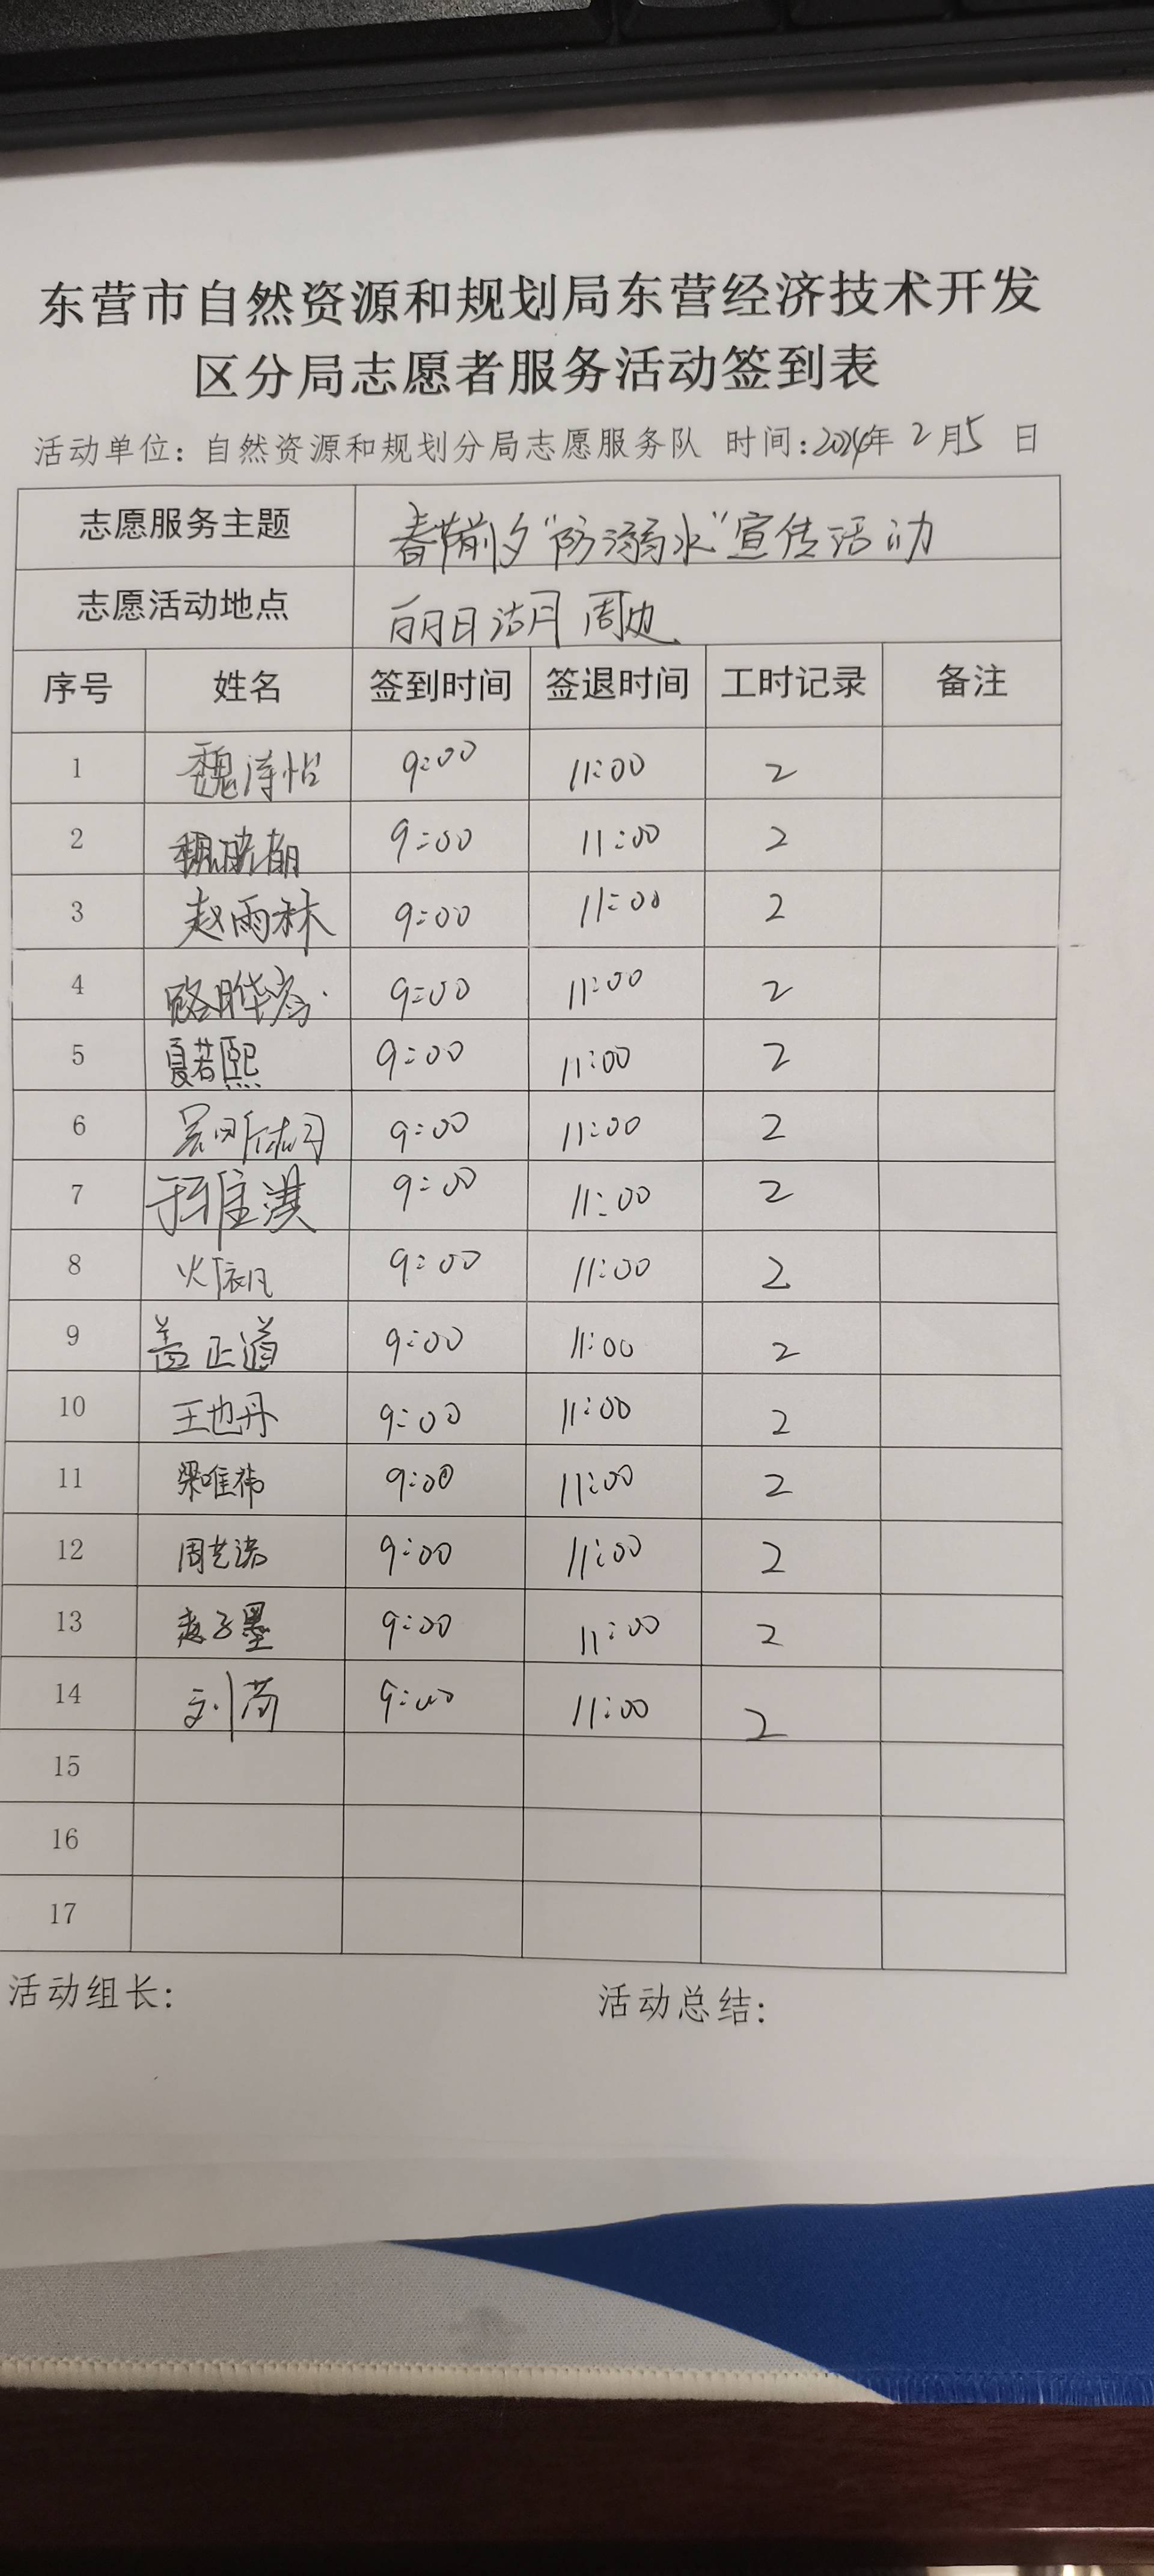 东营市自然资源和规划局东营经济技术开发
区分局志愿者服务活动签到表
活动单位：自然资源和规划分局志愿服务队 时间：2024年 2月5 日
志愿服务主题 春节前夕“防溺水”宣传活动
志愿活动地点 明月湖周边
序号 姓名 签到时间 签退时间 工时记录 备注
1 魏涛怡 9:00 11:00 2
2 魏晓萌 9:00 11:00 2
3 赵雨林 9:00 11:00 2
4 9:00 11:00 2
5 夏若熙 9:00 11:00 2
6 9:00 11:00 2
7 9:00 11:00 2
8 9:00 11:00 2
9 盖正道 9:00 11:00 2
10 王也丹 9:00 11:00 2
11 梁唯祎 9:00 11:00 2
12 周艺涵 9:00 11:00 2
13 赵子墨 9:00 11:00 2
14 刘芮 9:00 11:00 2
15
16
17
活动组长： 活动总结：